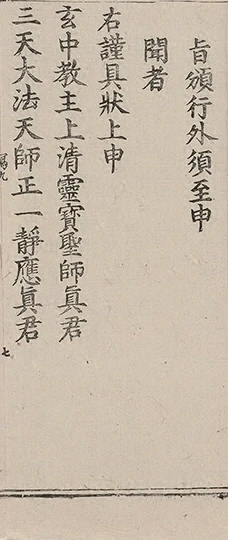 旨頒行外須至申
聞者
右謹具狀上申
玄中教主上清靈寶聖師眞君
三天大法天師正一靜應眞君
七